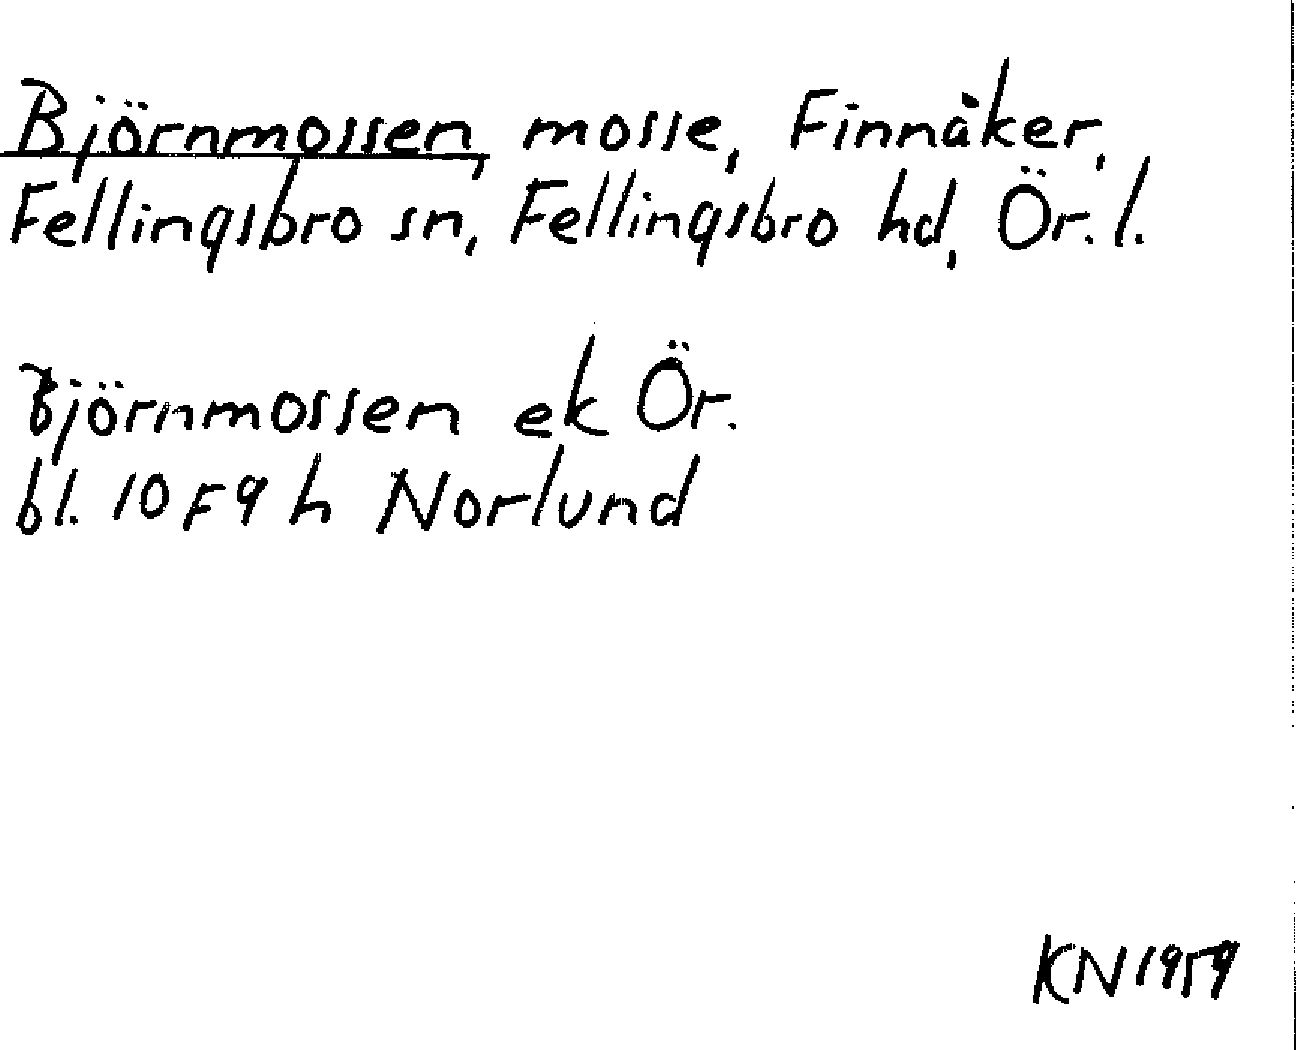 Björnmossen, mosse, Finnåker,
Fellingsbro sn, Fellingsbro hd, Ör. l.
Björnmossen ek Ör.
bl. 10 F 9 h Norlund
KN 1959